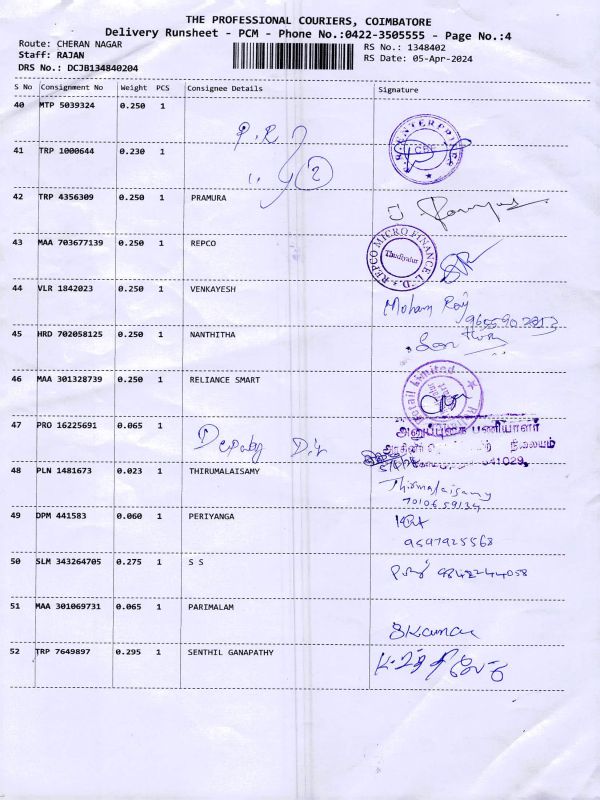 THE PROFESSIONAL COURIERS, COIMBATORE
Delivery Runsheet - PCM - Phone No.:0422-3505555 - Page No.:4
Route: CHERAN NAGAR
RS No.: 1348402
Staff: RAJAN
RS Date: 05-Apr-2024
DRS No.: DCJB134840204
S No Consignment No Weight PCS Consignee Details Signature
40 MTP 5039324 0.250 1
P.R
41 TRP 1000644 0.230 1
ENTERPRISES
2
42 TRP 4356309 0.250 1 PRAMURA
43 MAA 703677139 0.250 1 REPCO
REPCO MICRO FINANCE LTD.
Thudiyalur
44 VLR 1842023 0.250 1 VENKAYESH
Mohan Roj
45 HRD 702058125 0.250 1 NANTHITHA
46 MAA 301328739 0.250 1 RELIANCE SMART
Retail Limited
47 PRO 16225691 0.065 1
அனுப்புகை பணியாளர்
நிலையம்
641029
48 PLN 1481673 0.023 1 THIRUMALAISAMY
Thirmalaisamy
7010659134
49 DPM 441583 0.060 1 PERIYANGA
9597925568
50 SLM 343264705 0.275 1 S S
51 MAA 301069731 0.065 1 PARIMALAM
SKumar
52 TRP 7649897 0.295 1 SENTHIL GANAPATHY